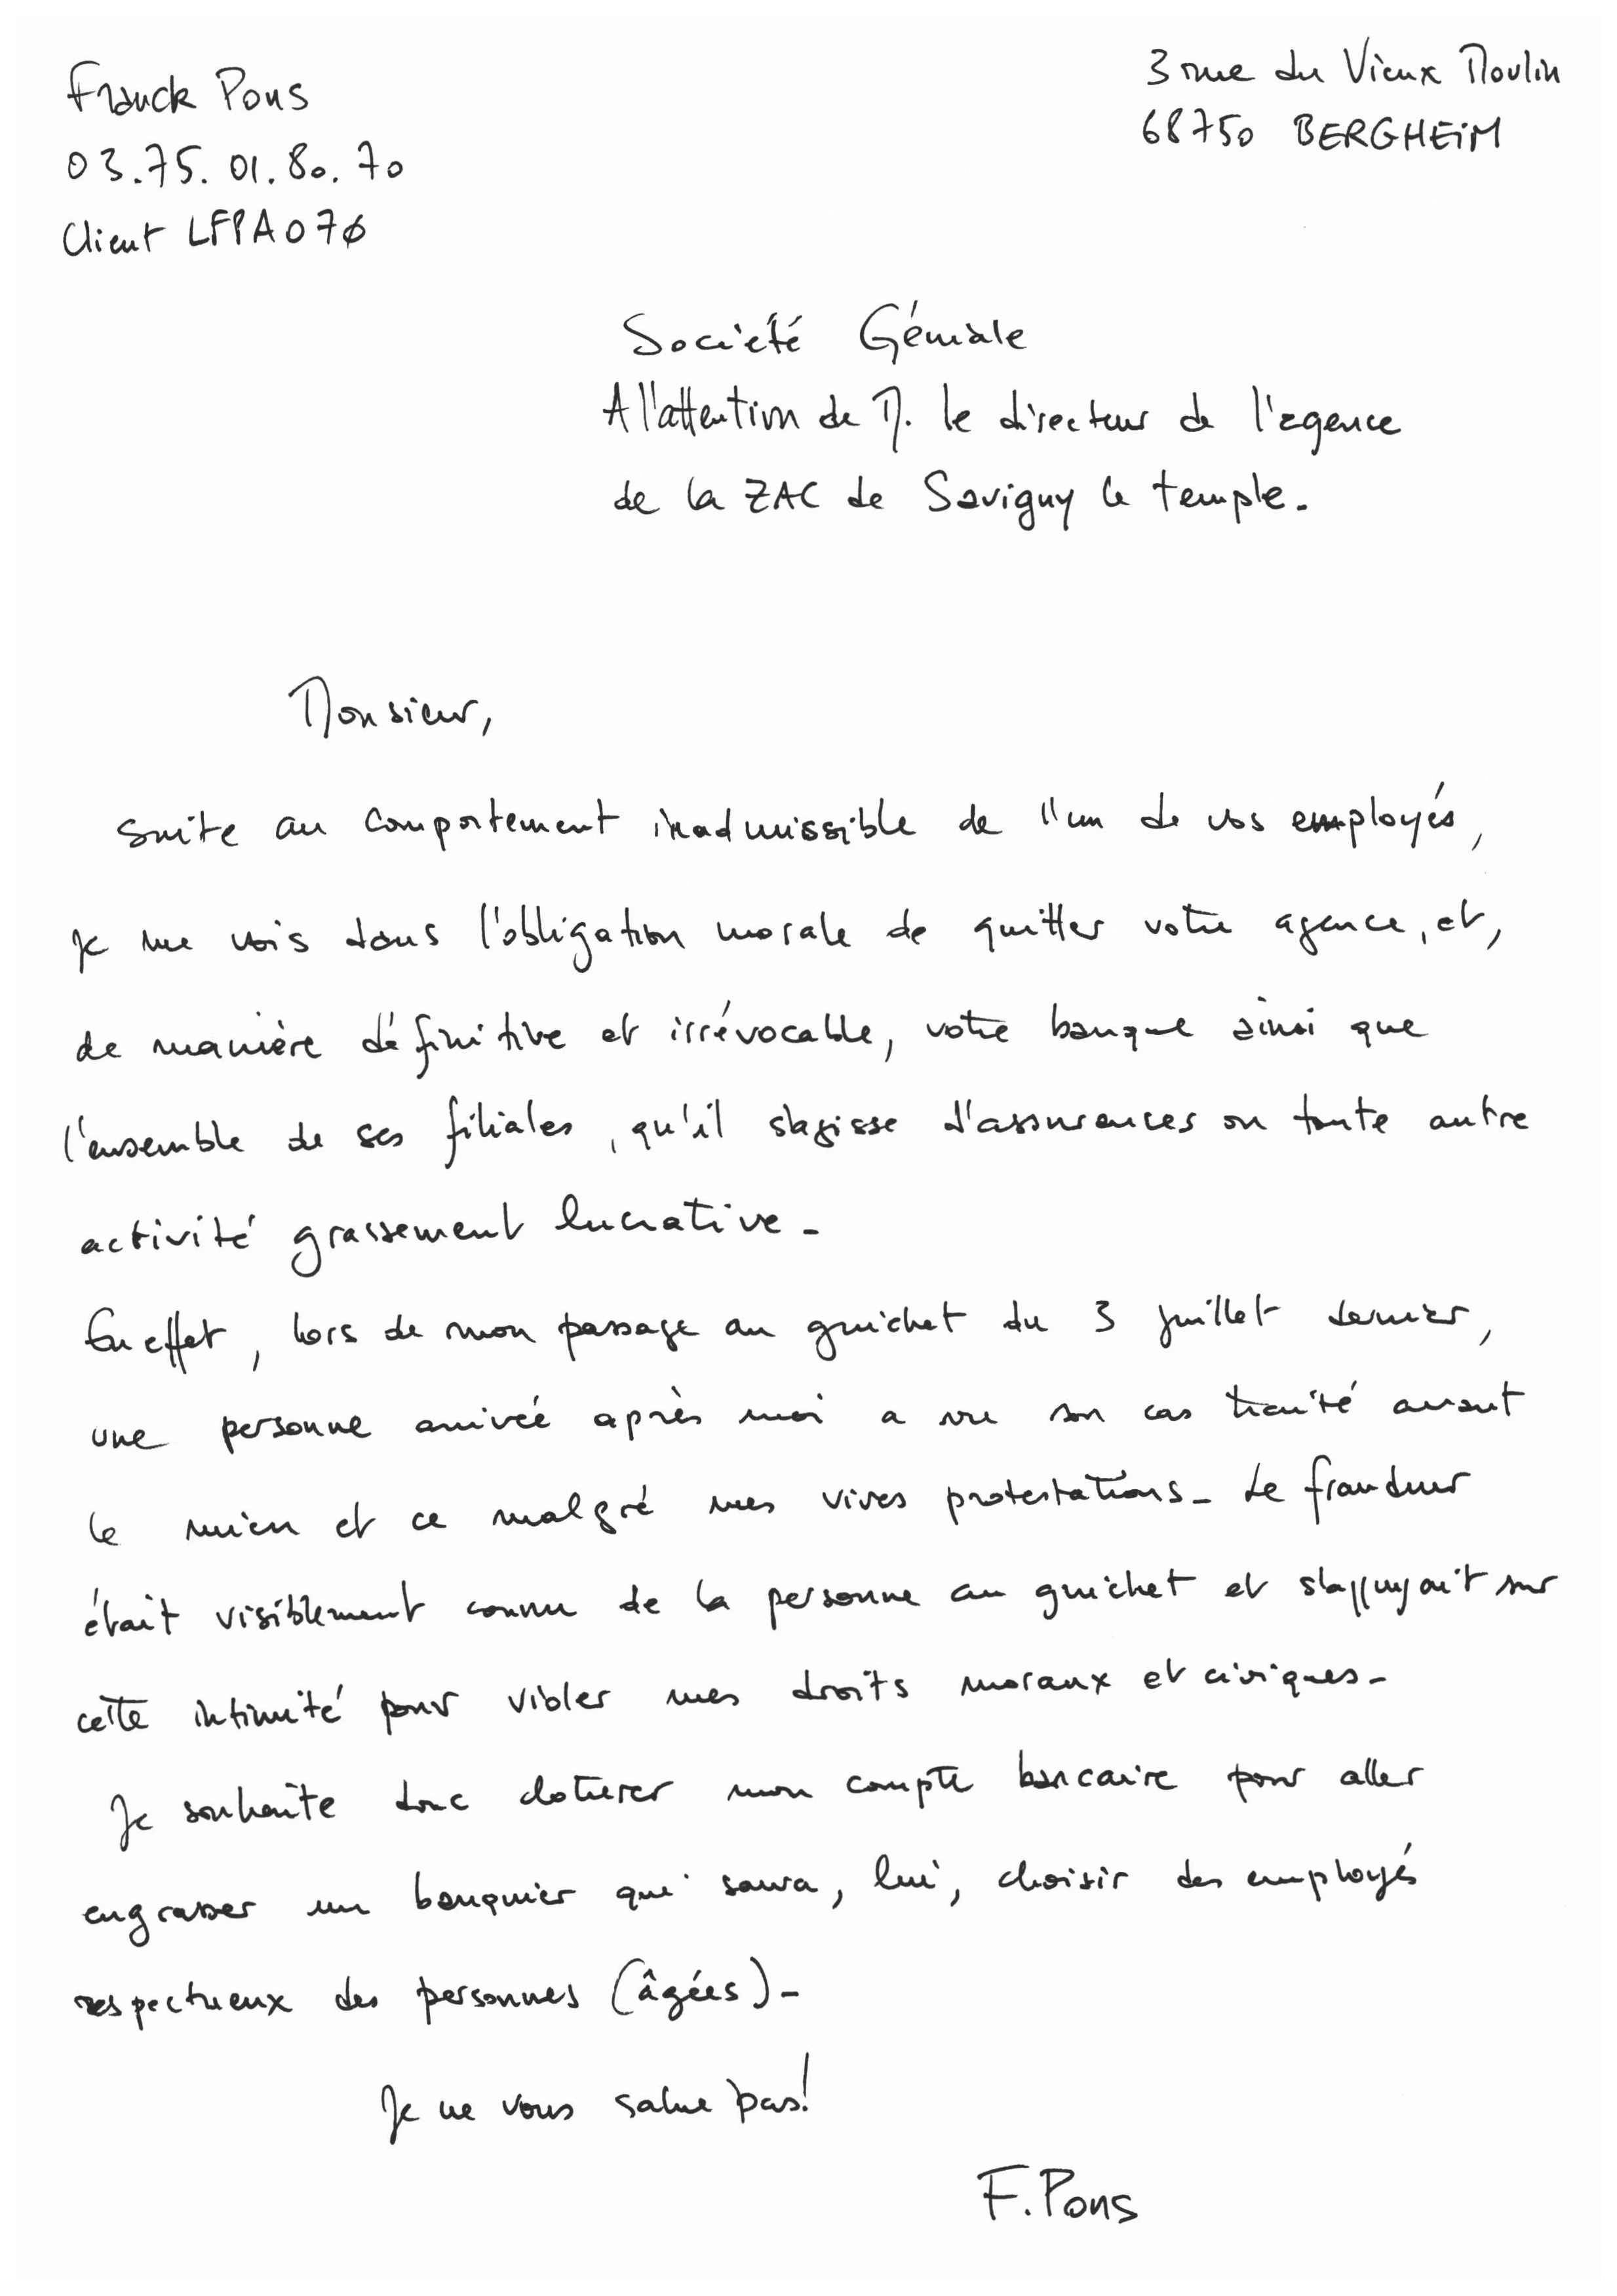 Franck Pons
03.75.01.80.70
Client LFPA070
3 rue du Vieux Moulin
68750 BERGHEIM
Société Géniale
A l'attention de M. le directeur de l'agence
de la ZAC de Savigny le temple.
Monsieur,
suite au comportement inadmissible de l'un de vos employés,
je me vois dans l'obligation morale de quitter votre agence, et,
de manière définitive et irrévocable, votre banque ainsi que
l'ensemble de ses filiales, qu'il s'agisse d'assurances ou toute autre
activité grassement lucrative.
En effet, lors de mon passage au guichet du 3 juillet dernier,
une personne arrivée après moi a vu son cas traité avant
le mien et ce malgré mes vives protestations. Le fraudeur
était visiblement connu de la personne au guichet et s'appuyait sur
cette intimité pour violer mes droits moraux et civiques.
Je souhaite donc cloturer mon compte bancaire pour aller
engraisser un banquier qui saura, lui, choisir des employés
respectueux des personnes (âgées).
Je ne vous salue pas!
F. Pons